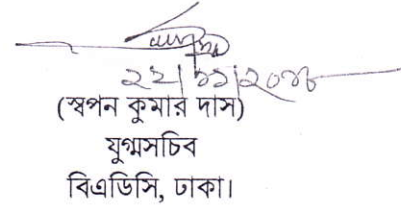 ২২/১১/২০১৮
(স্বপন কুমার দাস)
যুগ্মসচিব
বিএডিসি, ঢাকা।